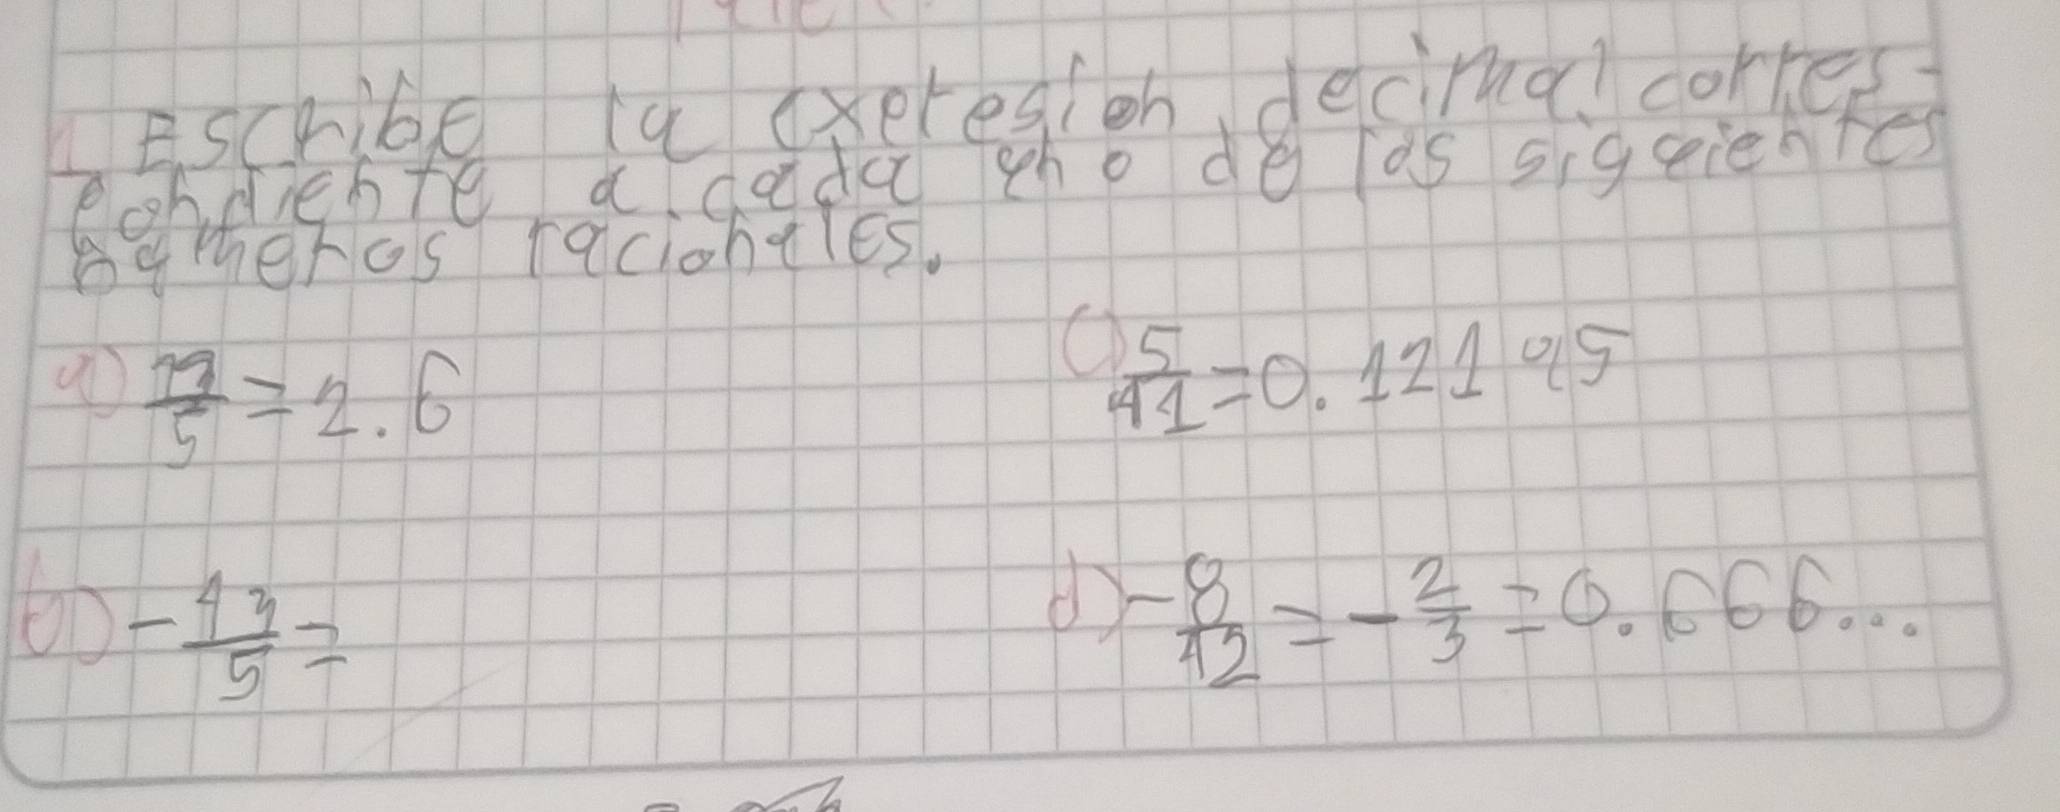 1 Escribe la expresion decimal corres-
pondiente a cada uno de los siguientes
numeros racionales.
a) 13/5 = 2.6
c) 5/41 = 0.12195
b) - 13/5 =
d) - 8/12 = - 2/3 = 0.666...